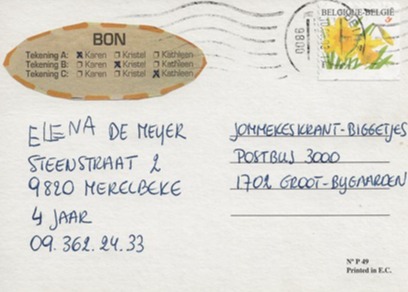 BON
Tekening A: Karen Kristel Kathleen
Tekening B: Karen Kristel Kathleen
Tekening C: Karen Kristel Kathleen
BELGIQUE-BELGIË
ELENA DE MEYER
STEENSTRAAT 2
9820 MERELBEKE
4 JAAR
09.362.24.33
JOMMEKESKRANT-BIGGETJES
POSTBUS 3000
1702 GROOT-BIJGAARDEN
Nº P 49
Printed in E.C.